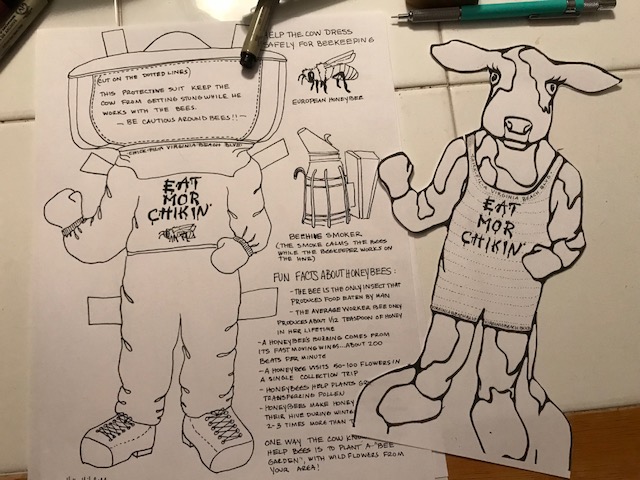 HELP THE COW DRESS
SAFELY FOR BEEKEEPING
(CUT ON THE DOTTED LINES)
THIS PROTECTIVE SUIT KEEP THE
COW FROM GETTING STUNG WHILE HE
WORKS WITH THE BEES.
— BE CAUTIOUS AROUND BEES!! —
CHICK-FIL-A VIRGINIA BEACH BLVD
EAT
MOR
CHIKIN'
EUROPEAN HONEYBEE
BEEHIVE SMOKER
(THE SMOKE CALMS THE BEES
WHILE THE BEEKEEPER WORKS ON
THE HIVE)
FUN FACTS ABOUT HONEYBEES:
- THE BEE IS THE ONLY INSECT THAT
PRODUCES FOOD EATEN BY MAN
- THE AVERAGE WORKER BEE ONLY
PRODUCES ABOUT 1/12 TEASPOON OF HONEY
IN HER LIFETIME
- A HONEYBEE'S BUZZING COMES FROM
ITS FAST MOVING WINGS... ABOUT 200
BEATS PER MINUTE
- A HONEYBEE VISITS 50-100 FLOWERS IN
A SINGLE COLLECTION TRIP
- HONEYBEES HELP PLANTS
TRANSFERRING POLLEN
- HONEYBEES MAKE HONEY
THEIR HIVE DURING WINTE
2-3 TIMES MORE THAN
ONE WAY THE COW KNO
HELP BEES IS TO PLANT A "BEE
GARDEN", WITH WILD FLOWERS FROM
YOUR AREA!
CHICK-FIL-A VIRGINIA BEACH BLVD
EAT
MOR
CHIKIN'